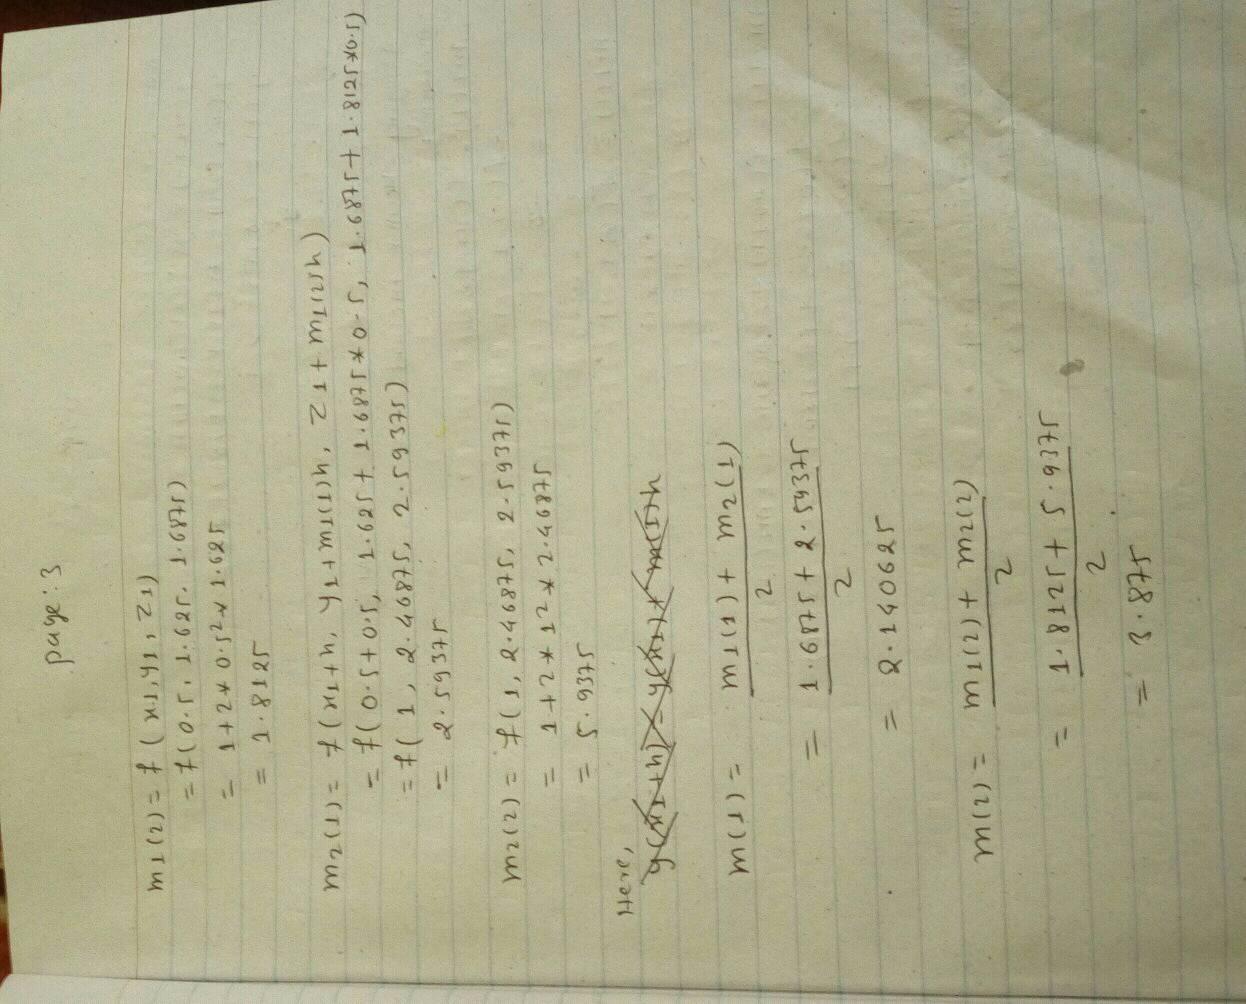 page:3
m1(2) = f(x1,y1,z1)
= f(0.5, 1.625, 1.6875)
= 1+2*0.5²*1.625
= 1.8125
m2(1) = f(x1+h, y1+m1(1)h, z1+m1(2)h)
= f(0.5+0.5, 1.625+1.6875*0.5, 1.6875+1.8125*0.5)
= f(1, 2.46875, 2.59375)
= 2.59375
m2(2) = f(1, 2.46875, 2.59375)
= 1+2*1²*2.46875
= 5.9375
Here,
y(x1+h) = y(x1)+m(1)h
m(1) = m1(1) + m2(1)
2
= 1.6875+2.59375
2
= 2.140625
m(2) = m1(2) + m2(2)
2
= 1.8125 + 5.9375
2
= 3.875